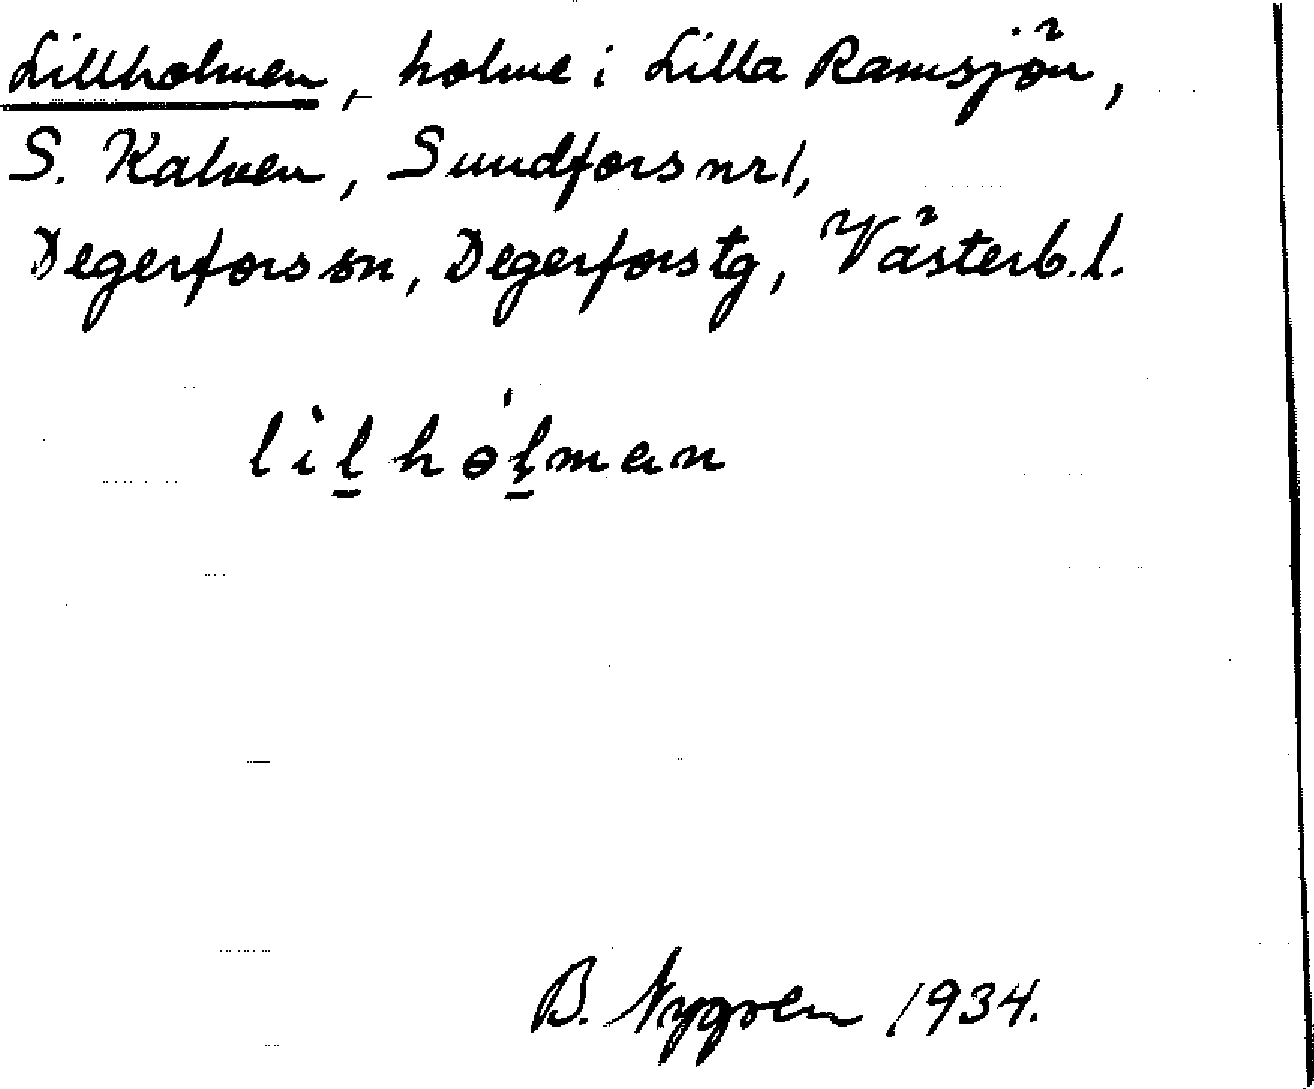 Lillholmen, holme i Lilla Ramsjön,
S. Kalven, Sundfors nr 1,
Degerfors sn, Degerfors tg, Västerb. l.
lìl̠hól̠man
B. Nygren 1934.